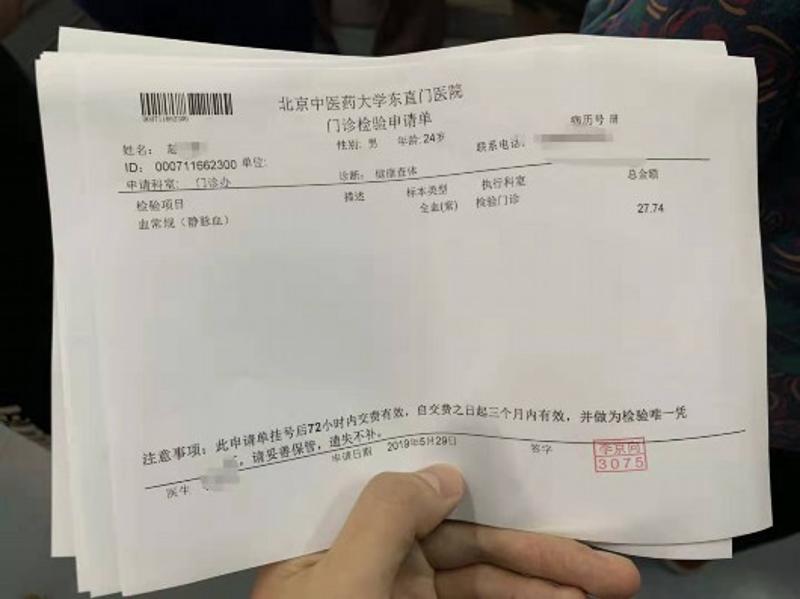 000711662300
北京中医药大学东直门医院
门诊检验申请单
病历号 册
姓名: 赵
性别: 男 年龄: 24岁
联系电话:
ID: 000711662300 单位:
申请科室: 门诊办
诊断: 健康查体
总金额
检验项目 描述 标本类型 执行科室
血常规(静脉血) 全血(紫) 检验门诊 27.74
注意事项: 此申请单挂号后72小时内交费有效, 自交费之日起三个月内有效, 并做为检验唯一凭
, 请妥善保管, 遗失不补。
医生 申请日期 2019年5月29日 签字
3075